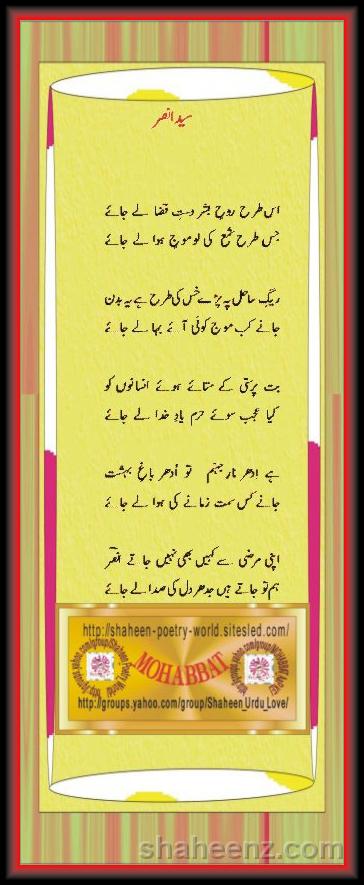 سید انصر
اس طرح روحِ بشر دستِ قضا لے جائے
جس طرح شمع کی لو موجِ ہوا لے جائے
ریگِ ساحل پہ پڑے خس کی طرح ہے یہ بدن
جانے کب موج کوئی آئے بہا لے جائے
بت پرستی کے ستائے ہوئے انسانوں کو
کیا عجب سوئے حرم یادِ خدا لے جائے
ہے اِدھر نارِ جہنم تو اُدھر باغِ بہشت
جانے کس سمت زمانے کی ہوا لے جائے
اپنی مرضی سے کہیں بھی نہیں جاتے انصر
ہم تو جاتے ہیں جدھر دل کی صدا لے جائے
http://shaheen-poetry-world.sitesled.com/
MOHABBAT
http://groups.yahoo.com/group/Shaheen_Urdu_Love/
shaheenz.com